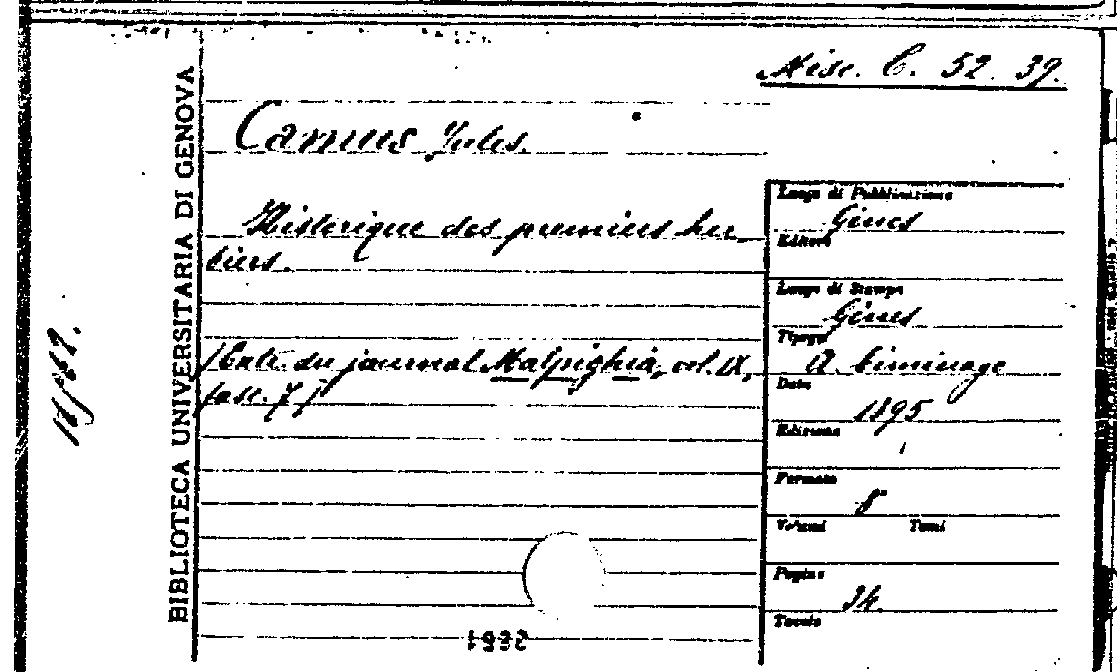 Misc. C. 52. 39.
BIBLIOTECA UNIVERSITARIA DI GENOVA
Camus Jules.
Historique des premiers her_
biers.
du journal Malpighia, vol. IX,
fasc. 7]
Luogo di Pubblicazione
Gênes
Editore
Luogo di Stampa
Gênes
Tipogr.
A. Ciminago
Data
1895
Edizione
Formato
8°
Volumi Tomi
Pagine
34.
Tavole